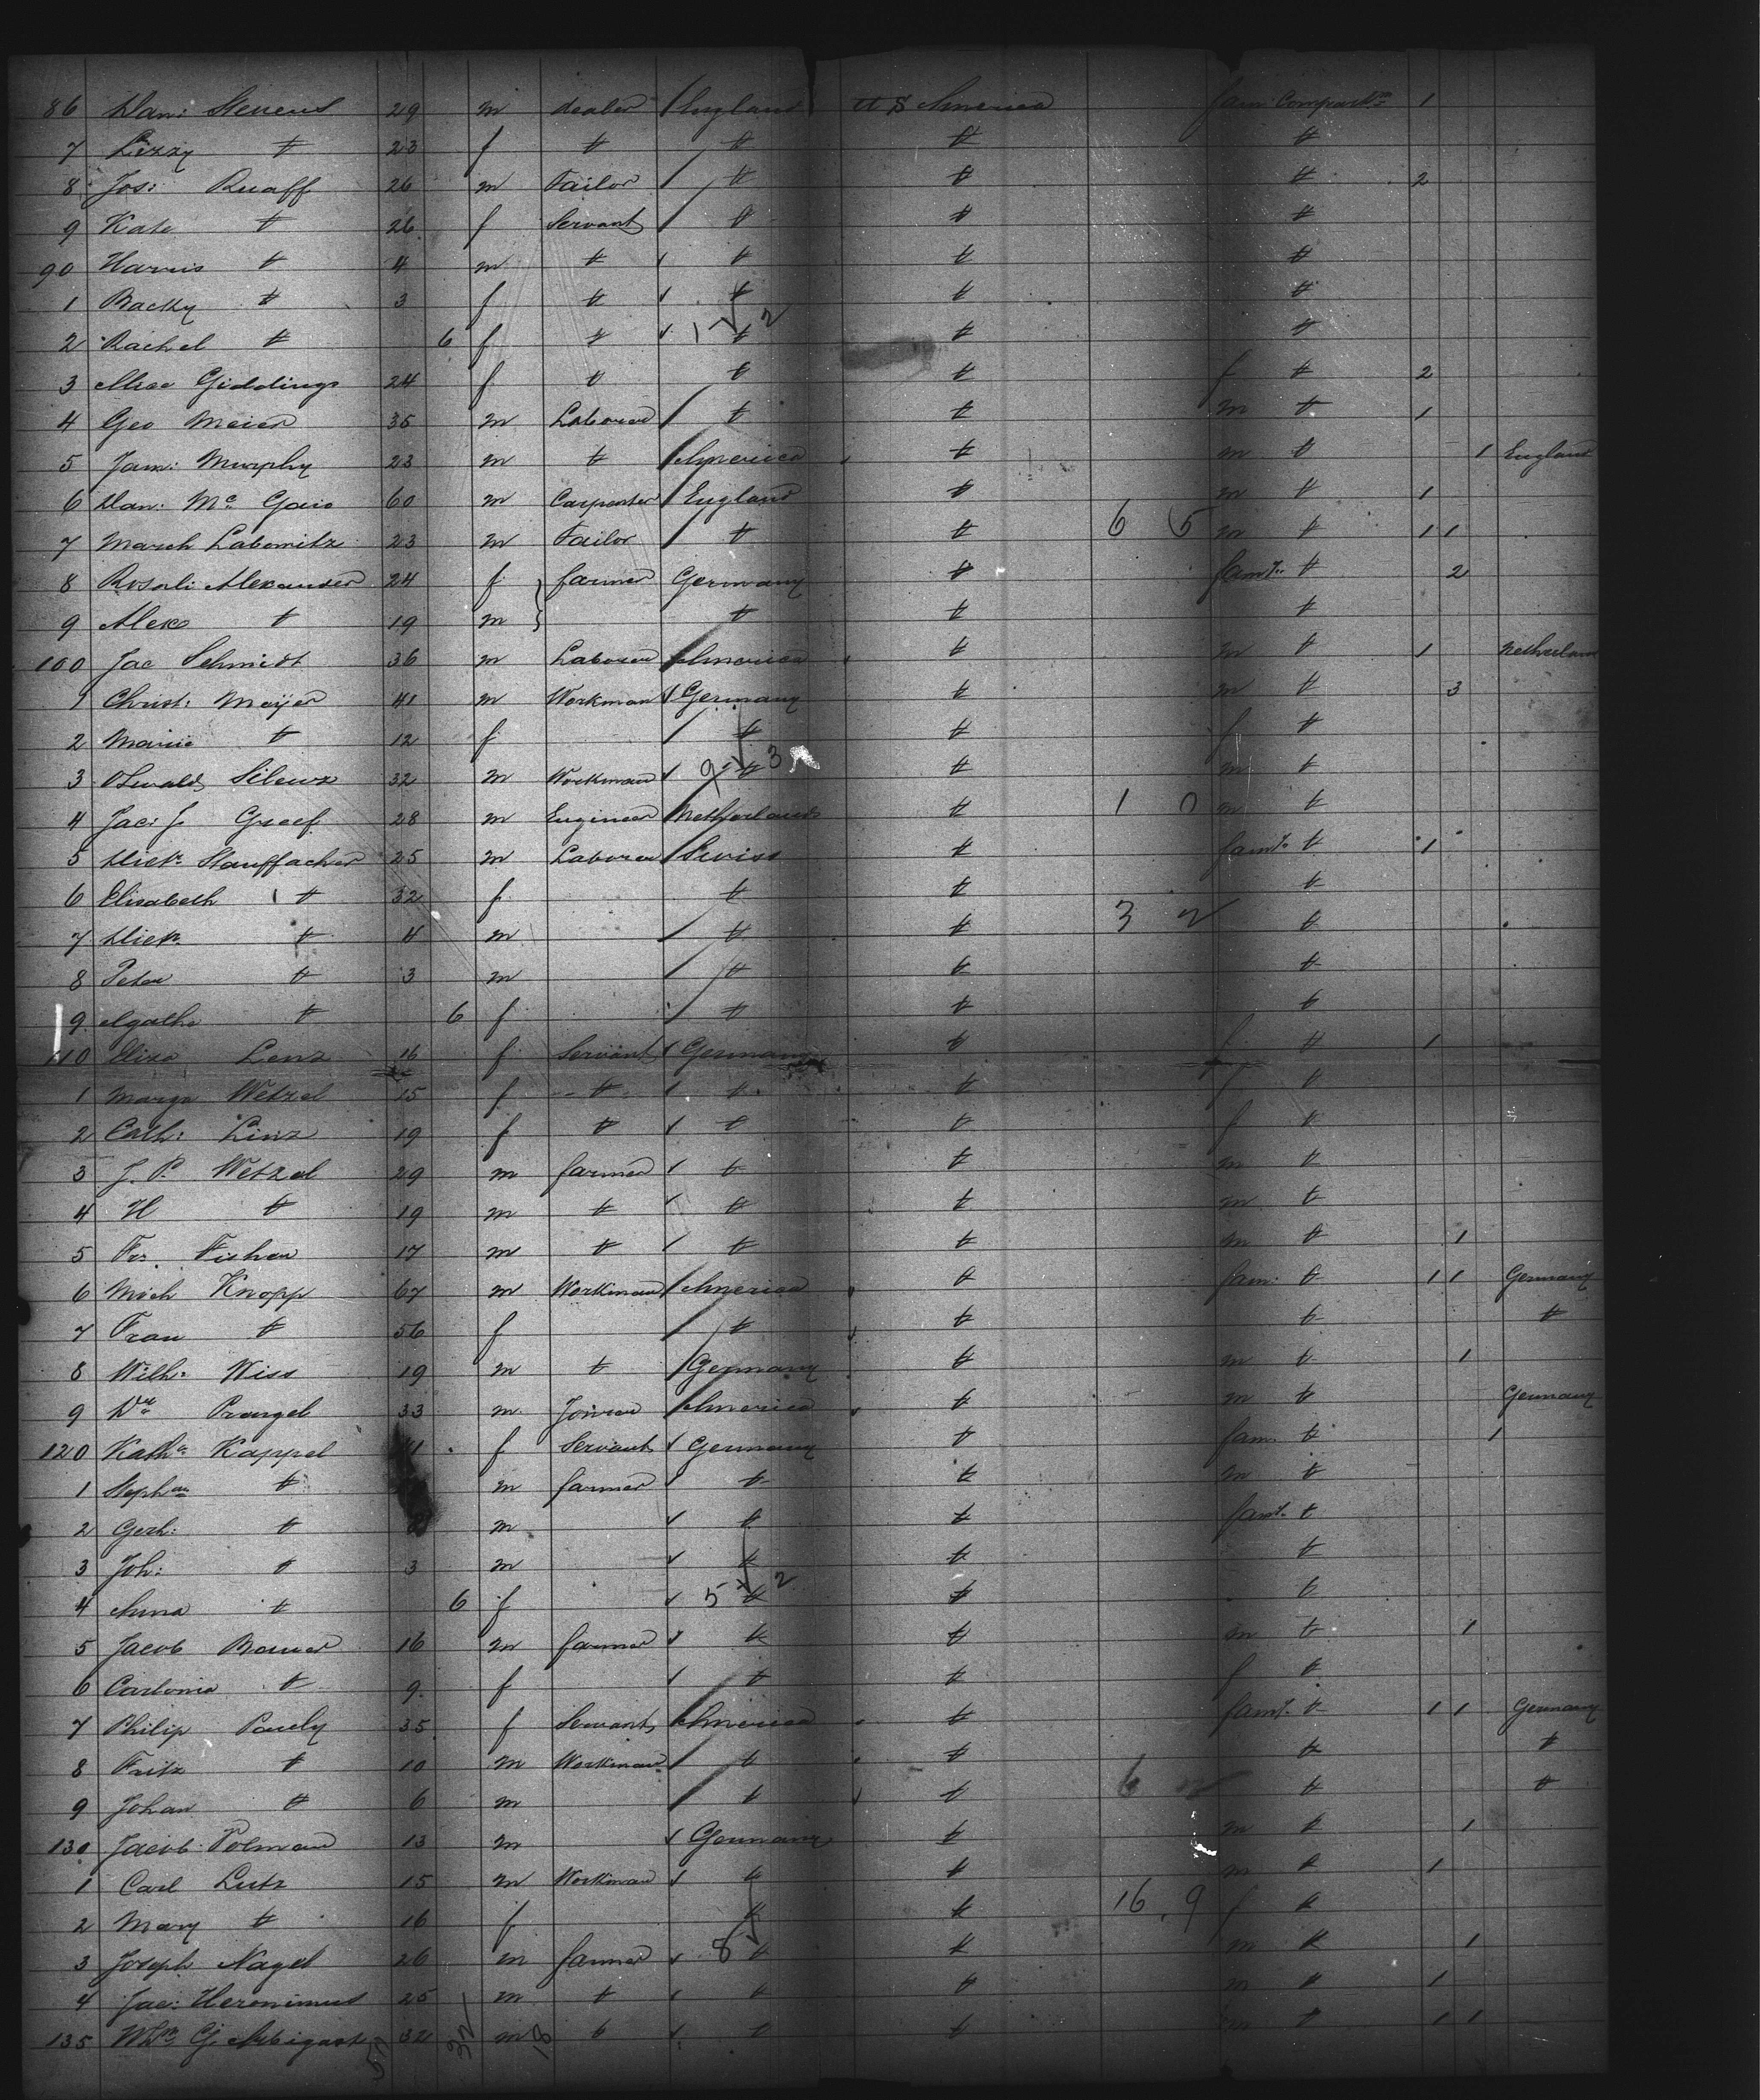 86 Dan: Stevens 29 m dealer England U S America fam: Compartm 1
7 Lizzy " 23 f " " " "
8 Jos: Ruaff 26 m Tailor " " " 2
9 Kate " 26 f Servant " " "
90 Harris " 4 m " " " "
1 Backy " 3 f " " " "
2 Rachel " 6 f " " 1 2 " "
3 Giddings 24 f " " " f " 2
4 Geo Meier 35 m Laborer " " m " 1
5 Jam: Murphy 23 m " America " m " 1 England
6 Dan: Mc 60 m Carpenter England " m " 1
7 March Labomitz 23 m Tailor " " 6 5 m " 1 1
8 Rosali Alexander 24 f farmer Germany " famy " 2
9 Alex " 19 m " " "
100 Jac Schmidt 36 m Laborer America " m " 1
1 Christ: Meijer 41 m Workman Germany " m " 3
2 " 12 f " " f "
3 Oswald 32 m Workman " 9 3 " m "
4 Jac: J Greef 28 m Engineer Netherlands " 1 0 m "
5 Stauffacher 25 m Laborer Swiss " famy " 1
6 Elisabeth " 32 f " " "
7 " 4 m " " 3 2 "
8 Peter " 3 m " " "
9 Agathe " 6 f " " "
110 Eliza Lenz 16 f Servant Germany " f " 1
1 Marga Wetzel 15 f " " " f "
2 Cath: Linz 19 f " " " f "
3 J. P. Wetzel 29 m farmer " " m "
4 H " 19 m " " " m "
5 Fisher 17 m " " " m " 1
6 Mich Knopp 67 m Workman America " fam: " 1 1 Germany
7 Frau " 56 f " " " "
8 Wilh: Wiss 19 m " Germany " m " 1
9 Prangel 33 m America " m " Germany
120 Katha Kappel f Servant Germany " fam " 1
1 Stephan " m farmer " " m "
2 Gerh: " m " " famy "
3 Joh: " 3 m " " "
4 Anna " 6 f " 5 2 " "
5 Jacob 16 m farmer " " m " 1
6 " 9 f " " f "
7 Philip Pauly 35 f Servant America " famy " 1 1 Germany
8 Fritz " 10 m Workman " " " "
9 Johan " 6 m " " 6 2 " "
130 Jacob Polman 13 m Germany " m " 1
1 Carl Lutz 15 m Workman " " m " 1
2 Mary " 16 f " " 16 9 f "
3 Joseph Nagel 26 m farmer " 8 " m " 1
4 Jac: Heronimus 25 m " " " m " 1
135 32 m " " " m " 1 1
50 32 18